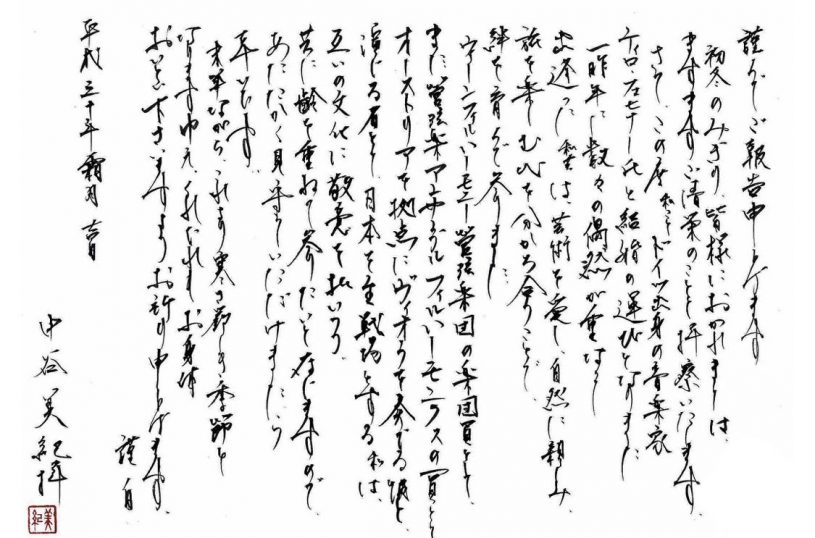 謹んでご報告申し上げます
初冬のみぎり、皆様におかれましては、
ますますご清栄のことと拝察いたします。
さて、この度私ことドイツ出身の音楽家
ティロ・フェヒナー氏と結婚の運びとなりました
一昨年に数々の偶然が重なって
出逢った私達は、芸術を愛し、自然に親しみ、
旅を楽しむ心を分かち合うことで
絆を育んで参りました
ウィーンフィルハーモニー管弦楽団の楽団員として
また管弦楽アンサンブル フィルハーモニクスの一員として
オーストリアを拠点にヴィオラを奏でる彼と、
演じる者として日本を主戦場とする私は、
互いの文化に敬意を払いつつ
共に齢を重ねて参りたいと存じますので
あたたかく見守っていただけましたら
幸いです。
末筆ながら、これより寒さ厳しき季節と
なります由え、くれぐれもお身体
おいとい下さいますようお祈り申し上げます。
謹白
平成三十年霜月
中谷美紀拝
美紀